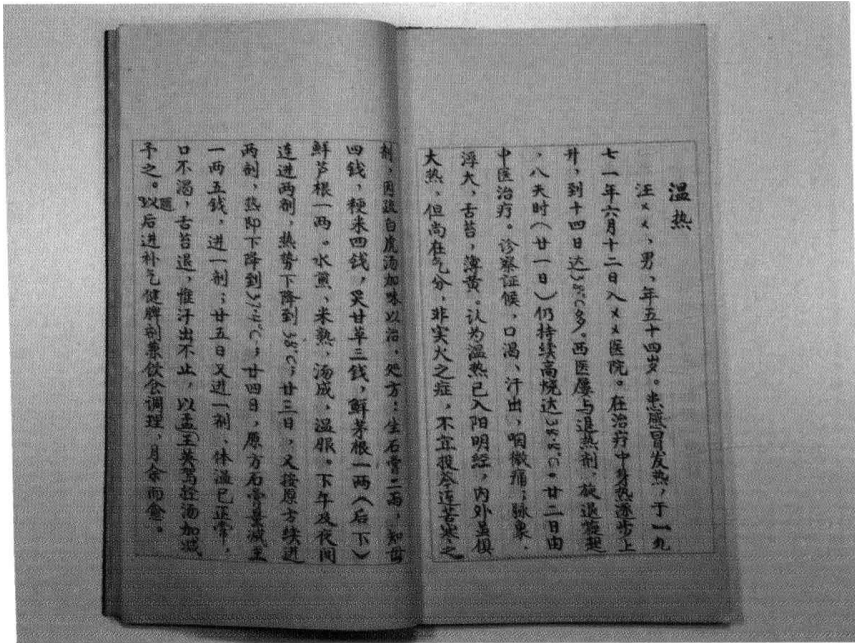 温热
汪××、男、年五十四岁。患感冒发热，于一九
七一年六月十二日入××医院。在治疗中身热逐步上
升，到十四日达38℃多。西医屡与退热剂，旋退旋起
，八天时（廿一日）仍持续高烧达38.8℃。廿二日由
中医治疗。诊察证候，口渴、汗出，咽微痛；脉象、
浮大，舌苔，薄黄。认为温热已入阳明经，内外虽俱
大热，但尚在气分，非实火之症，不宜投苓连苦寒之
剂，因疏白虎汤加味以治，处方：生石膏二两，知母
四钱，粳米四钱，炙甘草三钱，鲜茅根一两（后下）
鲜芦根一两。水煎、米熟，汤成，温服。下午及夜间
连进两剂，热势下降到38℃；廿三日，又按原方续进
两剂，热即下降到37.4℃；廿四日，原方石膏量减至
一两五钱，进一剂；廿五日又进一剂、体温已正常，
口不渴，舌苔退，惟汗出不止，以孟王英驾轻汤加减
予之。随以后进补气健脾剂兼饮食调理，月余而愈。